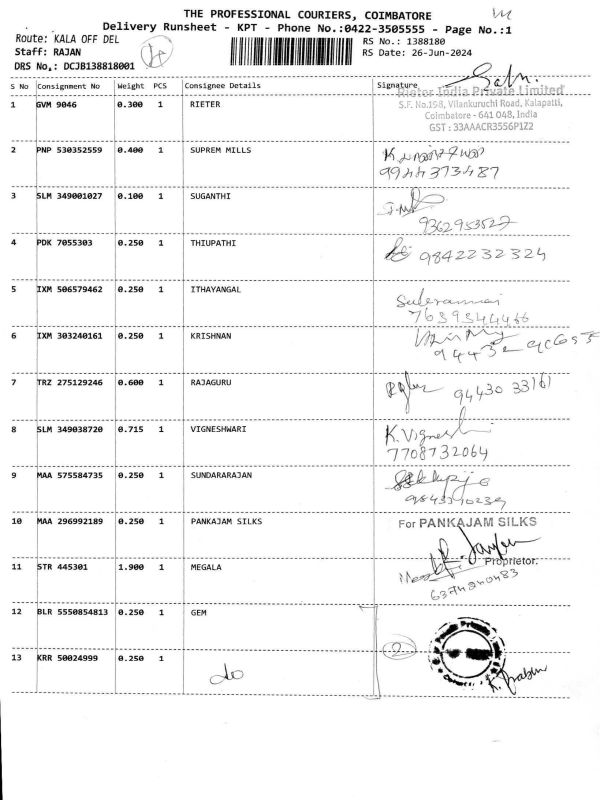 THE PROFESSIONAL COURIERS, COIMBATORE
Delivery Runsheet - KPT - Phone No.:0422-3505555 - Page No.:1
Route: KALA OFF DEL
RS No.: 1388180
Staff: RAJAN
RS Date: 26-Jun-2024
DRS No.: DCJB138818001
S No Consignment No Weight PCS Consignee Details Signature
1 GVM 9046 0.300 1 RIETER
Rieter India Private Limited
S.F. No.198, Vilankuruchi Road, Kalapatti,
Coimbatore - 641 048, India
GST : 33AAACR3556P1Z2
2 PNP 530352559 0.400 1 SUPREM MILLS
9944373487
3 SLM 349001027 0.100 1 SUGANTHI
9362953527
4 PDK 7055303 0.250 1 THIUPATHI 9842232324
5 IXM 506579462 0.250 1 ITHAYANGAL
7639344466
6 IXM 303240161 0.250 1 KRISHNAN
7 TRZ 275129246 0.600 1 RAJAGURU 94430 33161
8 SLM 349038720 0.715 1 VIGNESHWARI K. Vignesh
7708732064
9 MAA 575584735 0.250 1 SUNDARARAJAN
10 MAA 296992189 0.250 1 PANKAJAM SILKS For PANKAJAM SILKS
Proprietor.
11 STR 445301 1.900 1 MEGALA
6374840483
12 BLR 5550854813 0.250 1 GEM
2
13 KRR 50024999 0.250 1
do